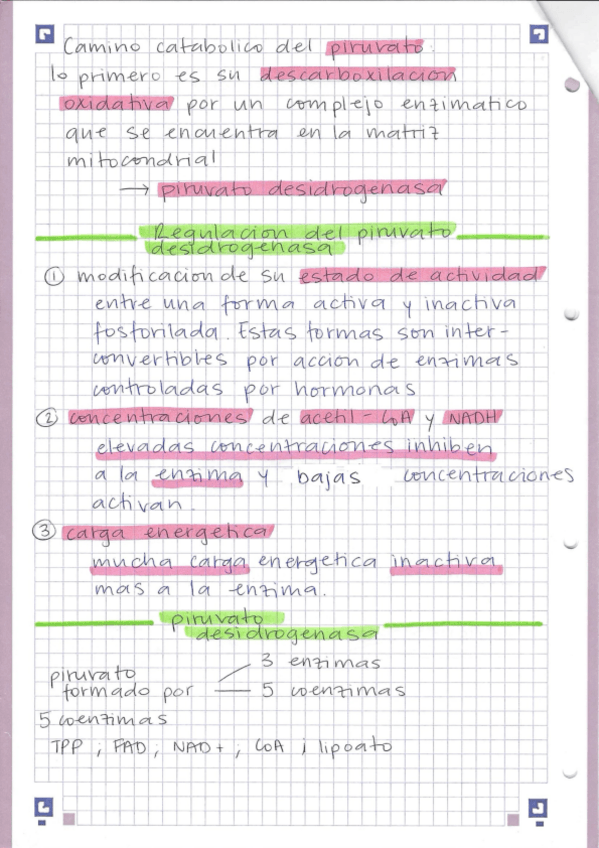 Camino catabolico del piruvato:
lo primero es su descarboxilacion
oxidativa por un complejo enzimatico
que se encuentra en la matriz
mitocondrial
→ piruvato desidrogenasa
Regulacion del piruvato
desidrogenasa
① modificacion de su estado de actividad
entre una forma activa y inactiva
fosforilada. Estas formas son inter-
convertibles por accion de enzimas
controladas por hormonas
② concentraciones de acetil-CoA y NADH
elevadas concentraciones inhiben
a la enzima y bajas concentraciones
activan.
③ carga energetica
mucha carga energetica inactiva
mas a la enzima.
piruvato
desidrogenasa
piruvato
formado por
3 enzimas
5 coenzimas
5 coenzimas
TPP ; FAD ; NAD+ ; CoA ; lipoato